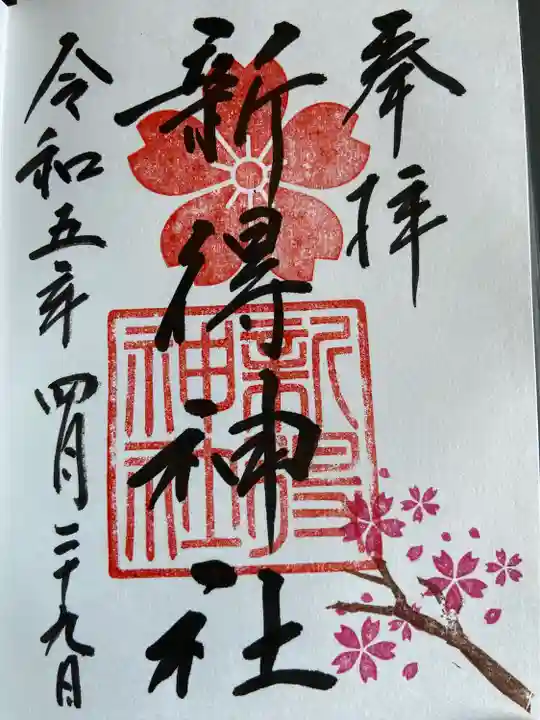 奉拝
新得神社
新得
神社
令和五年四月二十九日